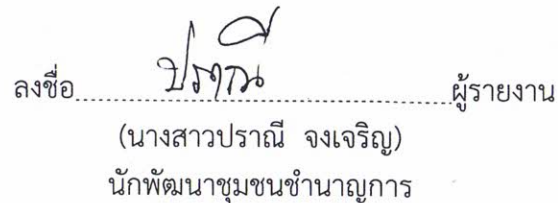 ลงชื่อ ปราณี ผู้รายงาน
(นางสาวปราณี จงเจริญ)
นักพัฒนาชุมชนชำนาญการ